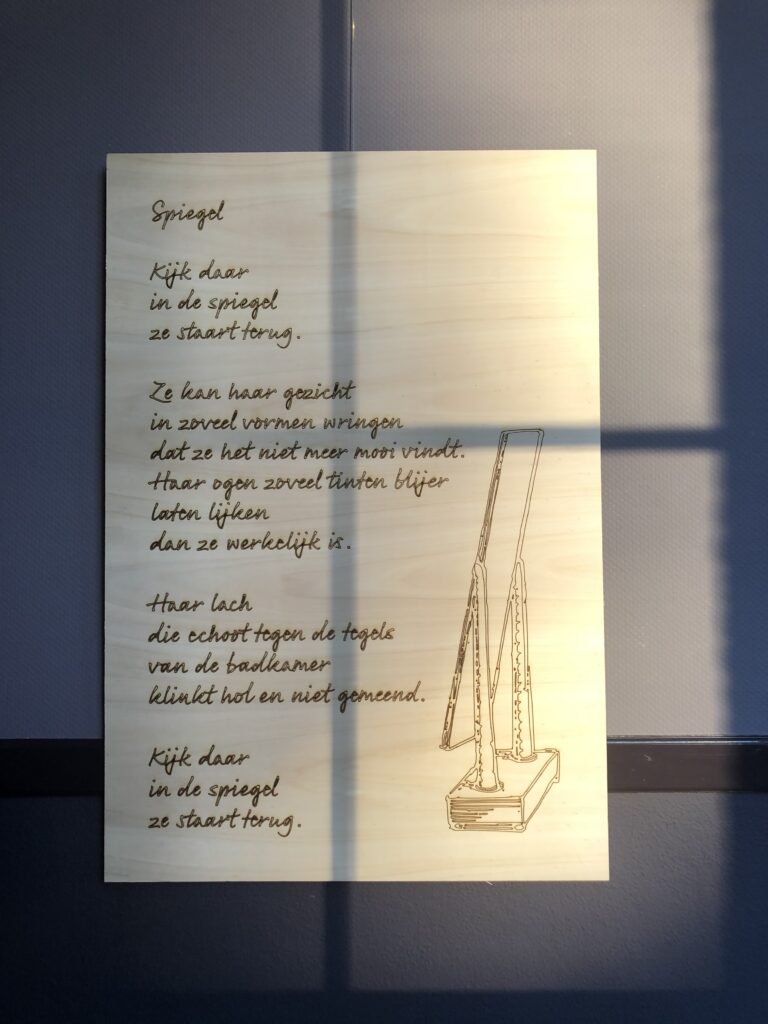 Spiegel
Kijk daar
in de spiegel
ze staart terug.
Ze kan haar gezicht
in zoveel vormen wringen
dat ze het niet meer mooi vindt.
Haar ogen zoveel tinten blijer
laten lijken
dan ze werkelijk is.
Haar lach
die echoot tegen de tegels
van de badkamer
klinkt hol en niet gemeend.
Kijk daar
in de spiegel
ze staart terug.